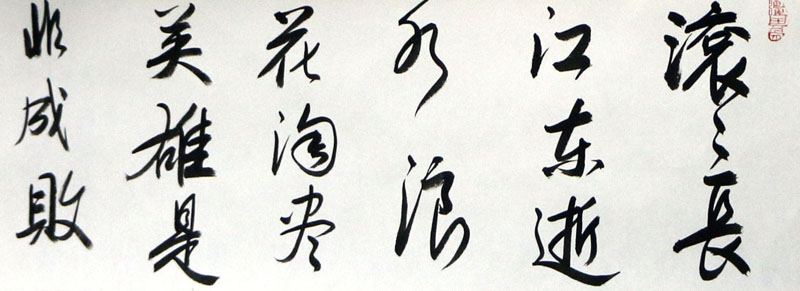 滚〻長
江东逝
水浪
花淘尽
英雄是
非成敗